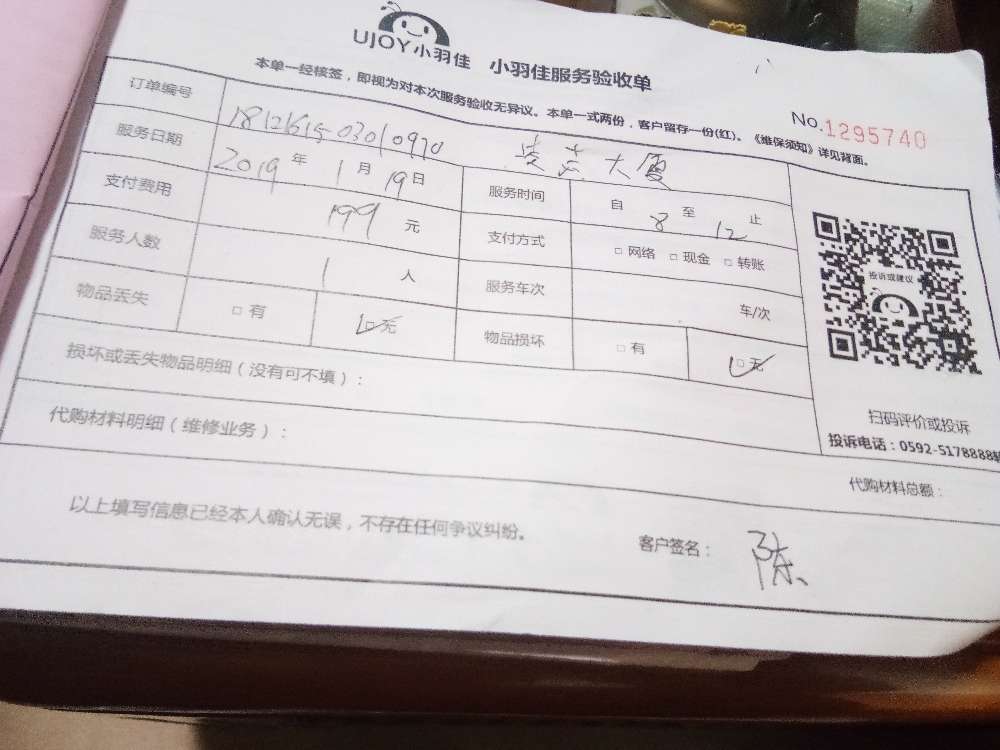 UJOY小羽佳 小羽佳服务验收单
No.1295740
本单一经核签，即视为对本次服务验收无异议。本单一式两份，客户留存一份(红)。《维保须知》详见背面。
订单编号
大厦
服务日期 2019年1月19日 服务时间 自8至12止
支付费用 199元 支付方式 □网络 □现金 □转账
服务人数 1人 服务车次 车/次
物品丢失 □有 ☑无 物品损坏 □有 ☑无
损坏或丢失物品明细（没有可不填）：
代购材料明细（维修业务）：
投诉或建议
扫码评价或投诉
投诉电话：0592-5178888转
代购材料总额：
以上填写信息已经本人确认无误，不存在任何争议纠纷。
客户签名： 陈